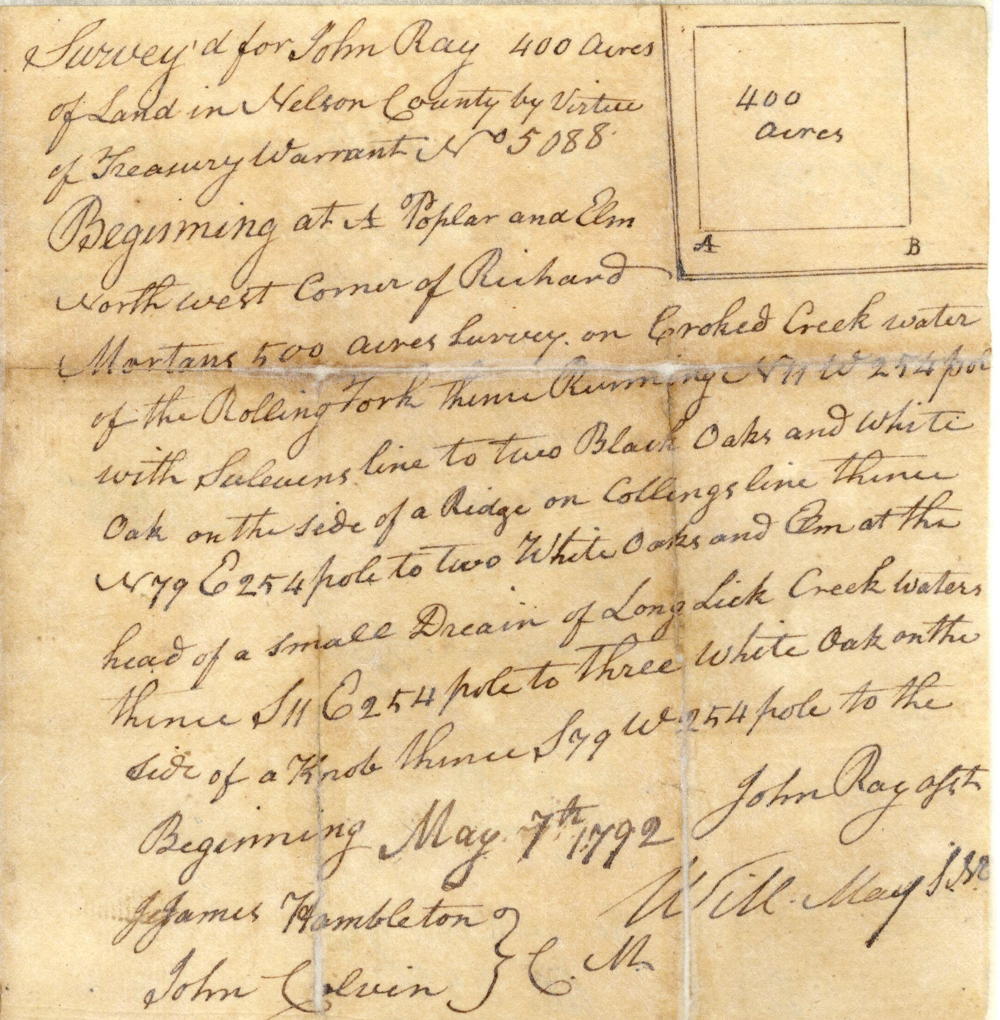 Survey'd for John Ray 400 acres
of Land in Nelson County by Virtue
of Treasury Warrant No 5088
Beginning at A Poplar and Elm
North west Corner of Richard
Mortans 500 acres Survey. on Croked Creek water
of the Rolling Fork thence Running N 11 W 254 pole
with Sulevens line to two Black Oaks and White
Oak on the side of a Ridge on Collings line thence
N 79 E 254 pole to two White Oaks and Elm at the
head of a small Dreain of Long Lick Creek Waters
thence S 11 E 254 pole to three White Oak on the
side of a Knob thence S 79 W 254 pole to the
Beginning May 7th 1792
John Ray asst
Will. May S.N.C
James Hambleton
John Colvin } C. M.
400
acres
A B